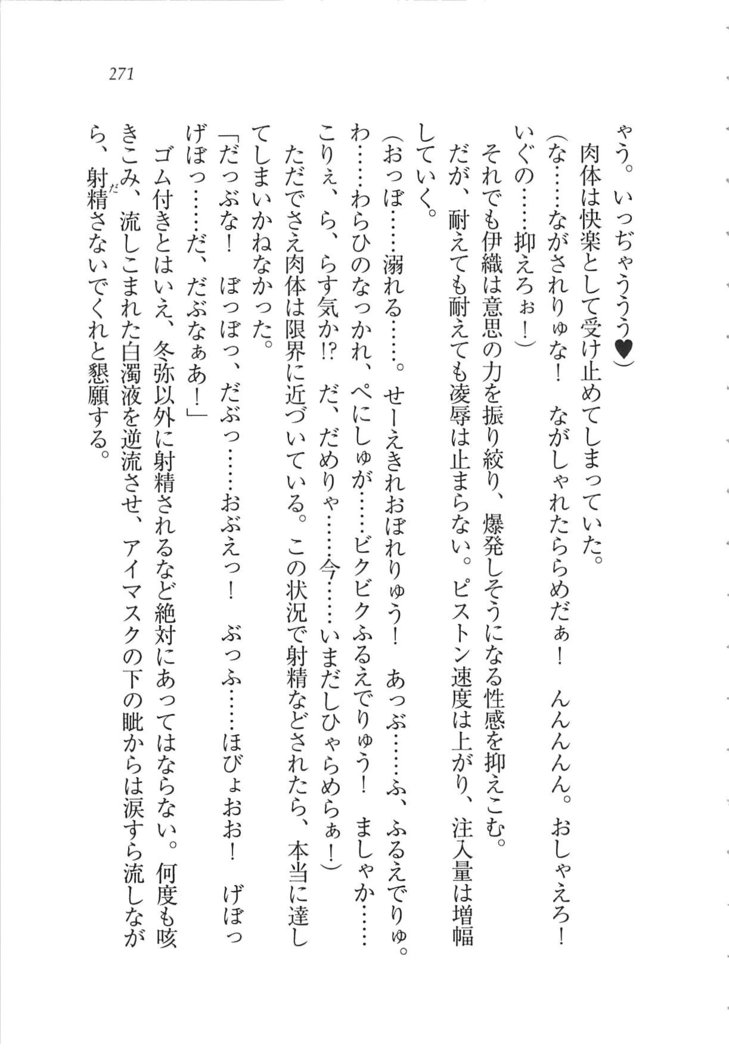 271
ゃう。いっぢゃううう♥）
肉体は快楽として受け止めてしまっていた。
（な……ながされりゅな！　ながしゃれたららめだぁ！　んんんんん。おしゃえろ！
いぐの……抑えろぉ！）
それでも伊織は意思の力を振り絞り、爆発しそうになる性感を抑えこむ。
だが、耐えても耐えても凌辱は止まらない。ピストン速度は上がり、注入量は増幅
していく。
（おっぼ……溺れる……。せーえきれおぼれりゅう！　あっぶ……ふ、ふるえでりゅ。
わ……わらひのなっかれ、ぺにしゅが……ビクビクふるえでりゅう！　ましゃか……
こりぇ、ら、らす気か!?　だ、だめりゃ……今……いまだしひゃらめらぁ！）
ただでさえ肉体は限界に近づいている。この状況で射精などされたら、本当に達し
てしまいかねなかった。
「だっぶな！　ぼっぼっ、だぶっ……おぶえっ！　ぶっふ……ほびょおお！　げぼっ
げぼっ……だ、だぶなぁあ！」
ゴム付きとはいえ、冬弥以外に射精されるなど絶対にあってはならない。何度も咳
きこみ、流しこまれた白濁液を逆流させ、アイマスクの下の眦からは涙すら流しなが
ら、射精（だ）さないでくれと懇願する。